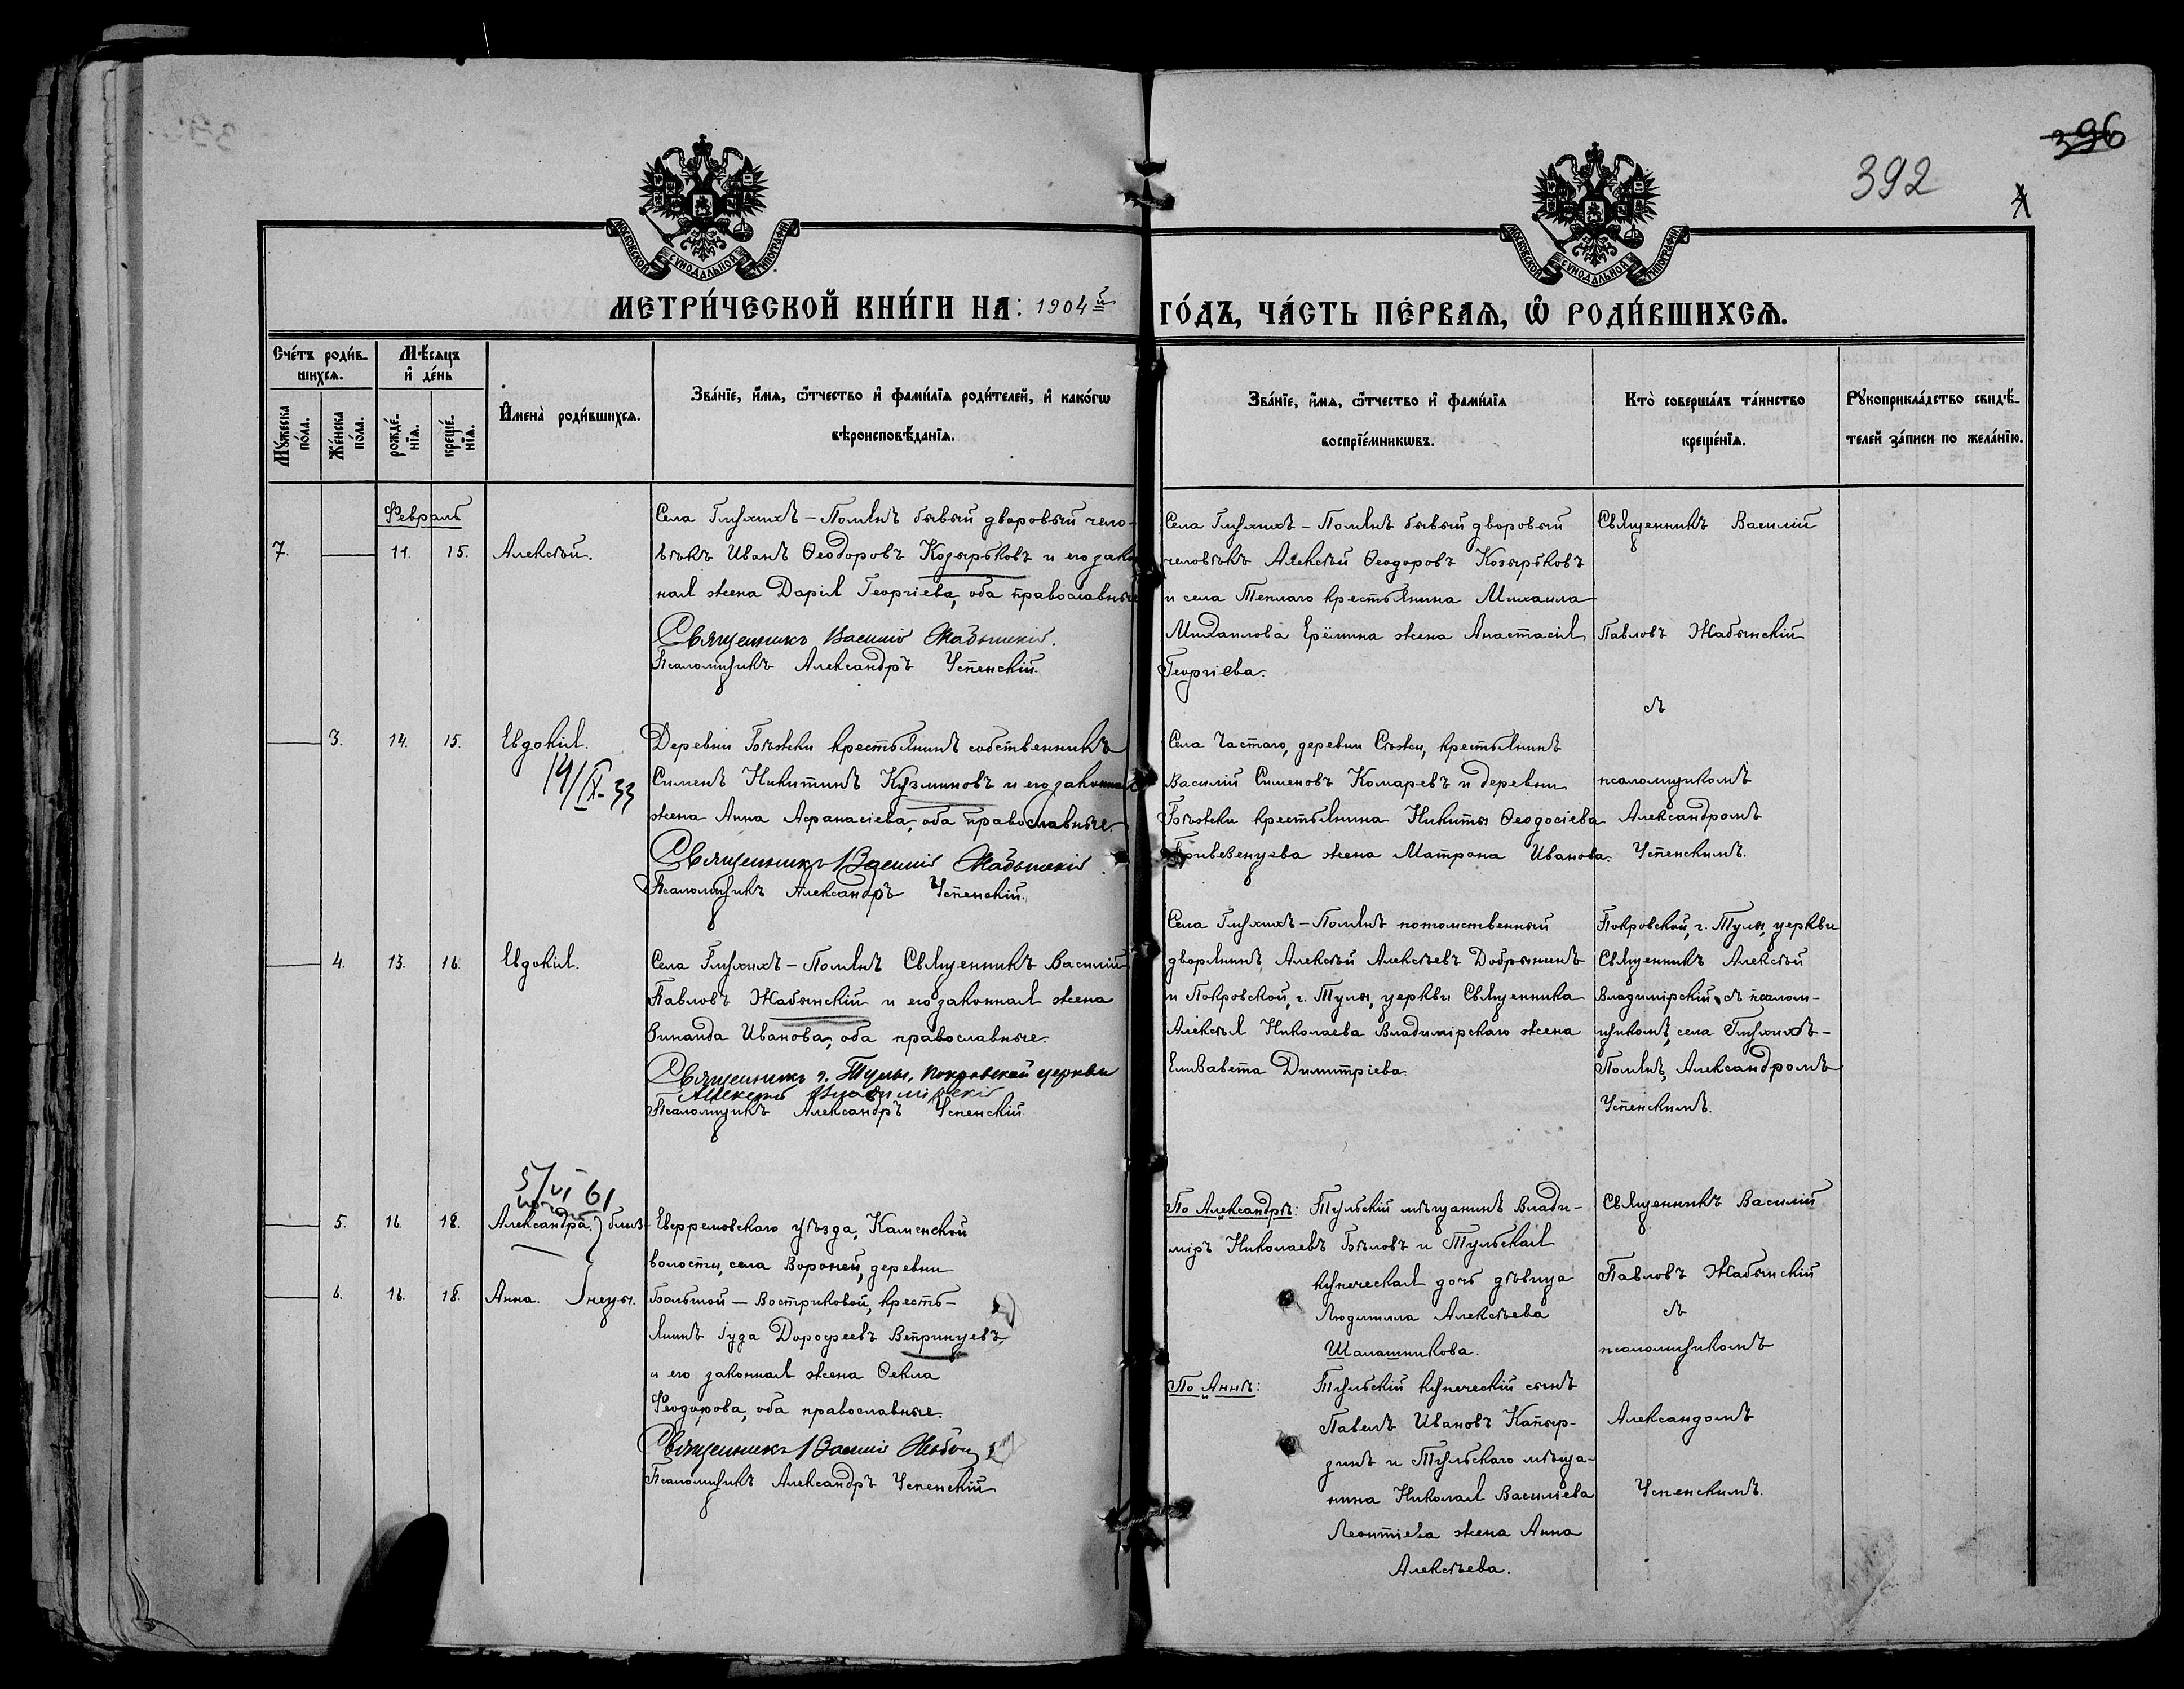 396
392
4
МОСКОВСКОЙ СѴНОДАЛЬНОЙ ТИПОГРАФІИ
МОСКОВСКОЙ СѴНОДАЛЬНОЙ ТИПОГРАФІИ
МЕТРИ́ЧЕСКОЙ КНИ́ГИ НА 1904й ГО́ДЪ, ЧА́СТЬ ПЕ́РВАЯ, Ѡ РОДИ́ВШИХСЯ.
Сче́тъ роди́в-
шихся.
Мꙋ́жеска по́ла.
Же́нска по́ла.
Мѣ́сяцъ и҆ де́нь
рожде́-нїя.
креще́-нїя.
И҆мена̀ роди́вшихся.
Зва́нїе, и҆́мя, ѻ҆́тчество и҆ фами́лїя роди́телей, и҆ како́гѡ
вѣроисповѣ́данїя.
Зва́нїе, и҆́мя, ѻ҆́тчество и҆ фами́лїя
воспрїе́мникѡвъ.
Кто̀ соверша́лъ та́инство
креще́нїя.
Рꙋкоприкла́дство свидѣ́-
телей за́писи по жела́нїю.
Февраль
7. 11. 15. Алексѣй.
Села Глухихъ-Полянъ бывый дворовый чело-
вѣкъ Иванъ Ѳеодоровъ Козырьковъ и его закон
ная жена Дарія Георгіева, оба православные
Священникъ Василій Жабынскій.
Псаломщикъ Александръ Успенскій.
Села Глухихъ-Полянъ бывый дворовый
человѣкъ Алексѣй Ѳеодоровъ Козырьковъ
и села Теплаго крестьянина Михаила
Михаилова Ерёмина жена Анастасія
Георгіева.
Священникъ Василій
Павловъ Жабынскій
съ
псаломщикомъ
Александромъ
Успенскимъ.
3. 14. 15. Евдокія.
14/IX-33
Деревни Бѣжки крестьянинъ собственникъ
Сименъ Никитинъ Кузминовъ и его законная
жена Анна Афанасіева, оба православные.
Священникъ Василій Жабынскій
Псаломщикъ Александръ Успенскій.
Села Частаго, деревни Сѣжки, крестьянинъ
Василій Сименовъ Комаревъ и деревни
Бѣжки крестьянина Никиты Ѳеодосіева
Привезенцева жена Матрона Иванова.
4. 13. 16. Евдокія.
Села Глухихъ-Полянъ Священникъ Василій
Павловъ Жабынскій и его законная жена
Зинаида Иванова, оба православные.
Священникъ г. Тулы, Покровской церкви
Алексѣй Владимірскій
Псаломщикъ Александръ Успенскій
Села Глухихъ-Полянъ потомственный
дворянинъ Алексѣй Алексѣевъ Добрынинъ
и Покровской, г. Тулы, церкви Священника
Алексѣя Николаева Владимірскаго жена
Елизавета Димитріева.
Покровской, г. Тулы, церкви
Священникъ Алексѣй
Владимірскій съ псалом-
щикомъ, села Глухихъ-
Полянъ, Александромъ
Успенскимъ.
5/VI 61
5. 16. 18. Александра. близ-
6. 16. 18. Анна. нецы.
Ефремовскаго уѣзда, Каменской
волости, села Вороней, деревни
Большой-Востриковой, кресть-
янинъ Іуда Дорофеевъ Ветринцевъ
и его законная жена Ѳекла
Ѳеодорова, оба православные.
Священникъ Василій
Псаломщикъ Александръ Успенскій
По Александрѣ: Тульскій мѣщанинъ Влади-
міръ Николаевъ Бѣловъ и Тульская
купеческая дочь дѣвица
Людмила Алексѣева
Шалашникова.
По Аннѣ: Тульскій купеческій сынъ
Павелъ Ивановъ Капыр-
зинъ и Тульскаго мѣща-
нина Николая Василіева
Леонтіева жена Анна
Алексѣева.
Священникъ Василій
Павловъ Жабынскій
съ
псаломщикомъ
Александомъ
Успенскимъ.